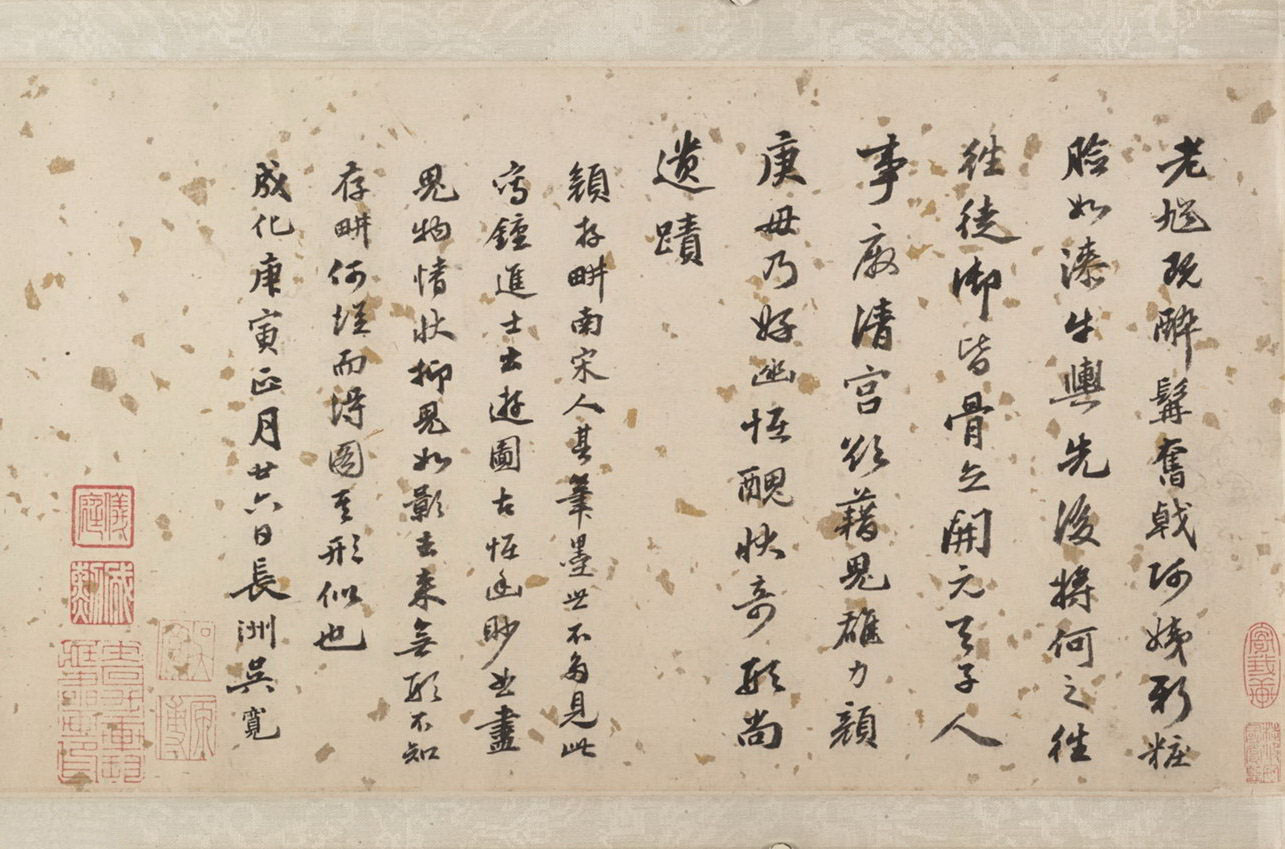 老馗既醉髯奮戟阿姨新粧
臉如漆牛輿先後將何之徃
徃徒御皆骨立開元天子人
事廢清宮欲藉鬼雄力顏
庚毋乃好幽恠醜狀奇形尚
遺蹟
顏存畊南宋人其筆墨世不多見此
寫鍾進士出遊圖古恠幽眇曲盡
鬼物情狀抑鬼如影去來無形不知
存畊何從而得圖其形似也
成化庚寅正月廿六日長洲吳寬